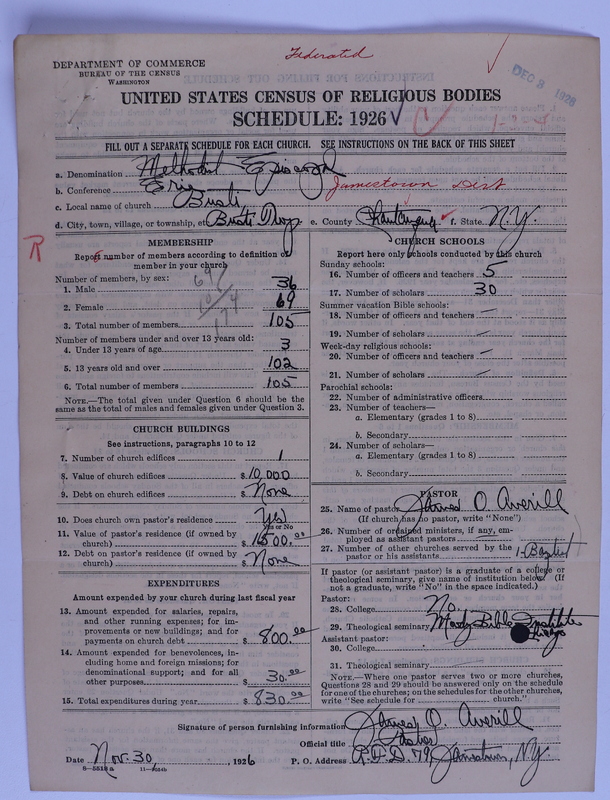 Federated
DEPARTMENT OF COMMERCE
BUREAU OF THE CENSUS
WASHINGTON
DEC 8 1926
UNITED STATES CENSUS OF RELIGIOUS BODIES
SCHEDULE: 1926
FILL OUT A SEPARATE SCHEDULE FOR EACH CHURCH. SEE INSTRUCTIONS ON THE BACK OF THIS SHEET
a. Denomination Methodist Episcopal
b. Conference Erie Jamestown Dist
c. Local name of church Busti
d. City, town, village, or township, etc Busti Twp. e. County Chautauqua f. State N.Y.
R
MEMBERSHIP
Report number of members according to definition of member in your church
Number of members, by sex:
1. Male 36
2. Female 69
3. Total number of members 105
Number of members under and over 13 years old:
4. Under 13 years of age 3
5. 13 years old and over 102
6. Total number of members 105
NOTE.—The total given under Question 6 should be the same as the total of males and females given under Question 3.
CHURCH BUILDINGS
See instructions, paragraphs 10 to 12
7. Number of church edifices 1
8. Value of church edifices $ 10,000
9. Debt on church edifices $ None
10. Does church own pastor's residence Yes
Yes or No
11. Value of pastor's residence (if owned by church) $ 1500.00
12. Debt on pastor's residence (if owned by church) $ None
EXPENDITURES
Amount expended by your church during last fiscal year
13. Amount expended for salaries, repairs, and other running expenses; for improvements or new buildings; and for payments on church debt $ 800.00
14. Amount expended for benevolences, including home and foreign missions; for denominational support; and for all other purposes $ 30.00
15. Total expenditures during year $ 830.00
CHURCH SCHOOLS
Report here only schools conducted by this church
Sunday schools:
16. Number of officers and teachers 5
17. Number of scholars 30
Summer vacation Bible schools:
18. Number of officers and teachers —
19. Number of scholars —
Week-day religious schools:
20. Number of officers and teachers —
21. Number of scholars —
Parochial schools:
22. Number of administrative officers
23. Number of teachers—
a. Elementary (grades 1 to 8)
b. Secondary
24. Number of scholars—
a. Elementary (grades 1 to 8)
b. Secondary
PASTOR
25. Name of pastor James O. Averill
(If church has no pastor, write "None")
26. Number of ordained ministers, if any, employed as assistant pastors
27. Number of other churches served by the pastor or his assistants 1-Baptist
If pastor (or assistant pastor) is a graduate of a college or theological seminary, give name of institution below (If not a graduate, write "No" in the space indicated.)
Pastor:
28. College No.
29. Theological seminary Moody Bible Institute Chicago
Assistant pastor:
30. College
31. Theological seminary
NOTE.—Where one pastor serves two or more churches, Questions 28 and 29 should be answered only on the schedule for one of the churches; on the schedules for the other churches, write "See schedule for church."
Signature of person furnishing information James O. Averill
Official title Pastor
Date Nov. 30, 1926 P. O. Address R.F.D. 79, Jamestown, N.Y.